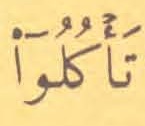 تَأۡكُلُوٓاْ